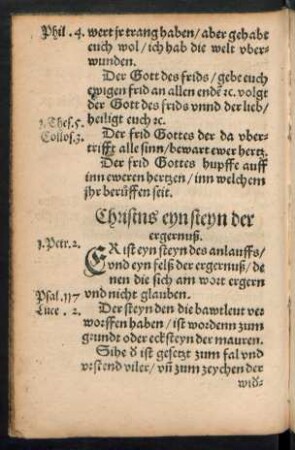 Phil. 4. wert jr trang haben / aber gehabt
euch wol / ich hab die welt vber-
wunden.
Der Gott des frids / gebe euch
ewigen frid an allen endē ꝛc. volgt
der Gott des frids vnnd der lieb /
heiligt euch ꝛc.
1. Thes. 5.
Collos. 3. Der frid Gottes der da vber-
trifft alle sinn / bewart ewer hertz.
Der frid Gottes hupffe auff
inn eweren hertzen / inn welchem
jhr berüffen seit.
Christus eyn steyn der
ergernuß.
1. Petr. 2. ER ist eyn steyn des anlauffs /
vnd eyn felß der ergernuß / de
nen die sich am wort ergern
vnd nicht glauben.
Psal. 117 Der steyn den die bawleut ver
Luce . 2. worffen haben / ist wordenn zum
grundt oder ecksteyn der mauren.
Sihe d̕ ist gesetzt zum fal vnd
vrstend viler / vn̄ zum zeychen der
wid-